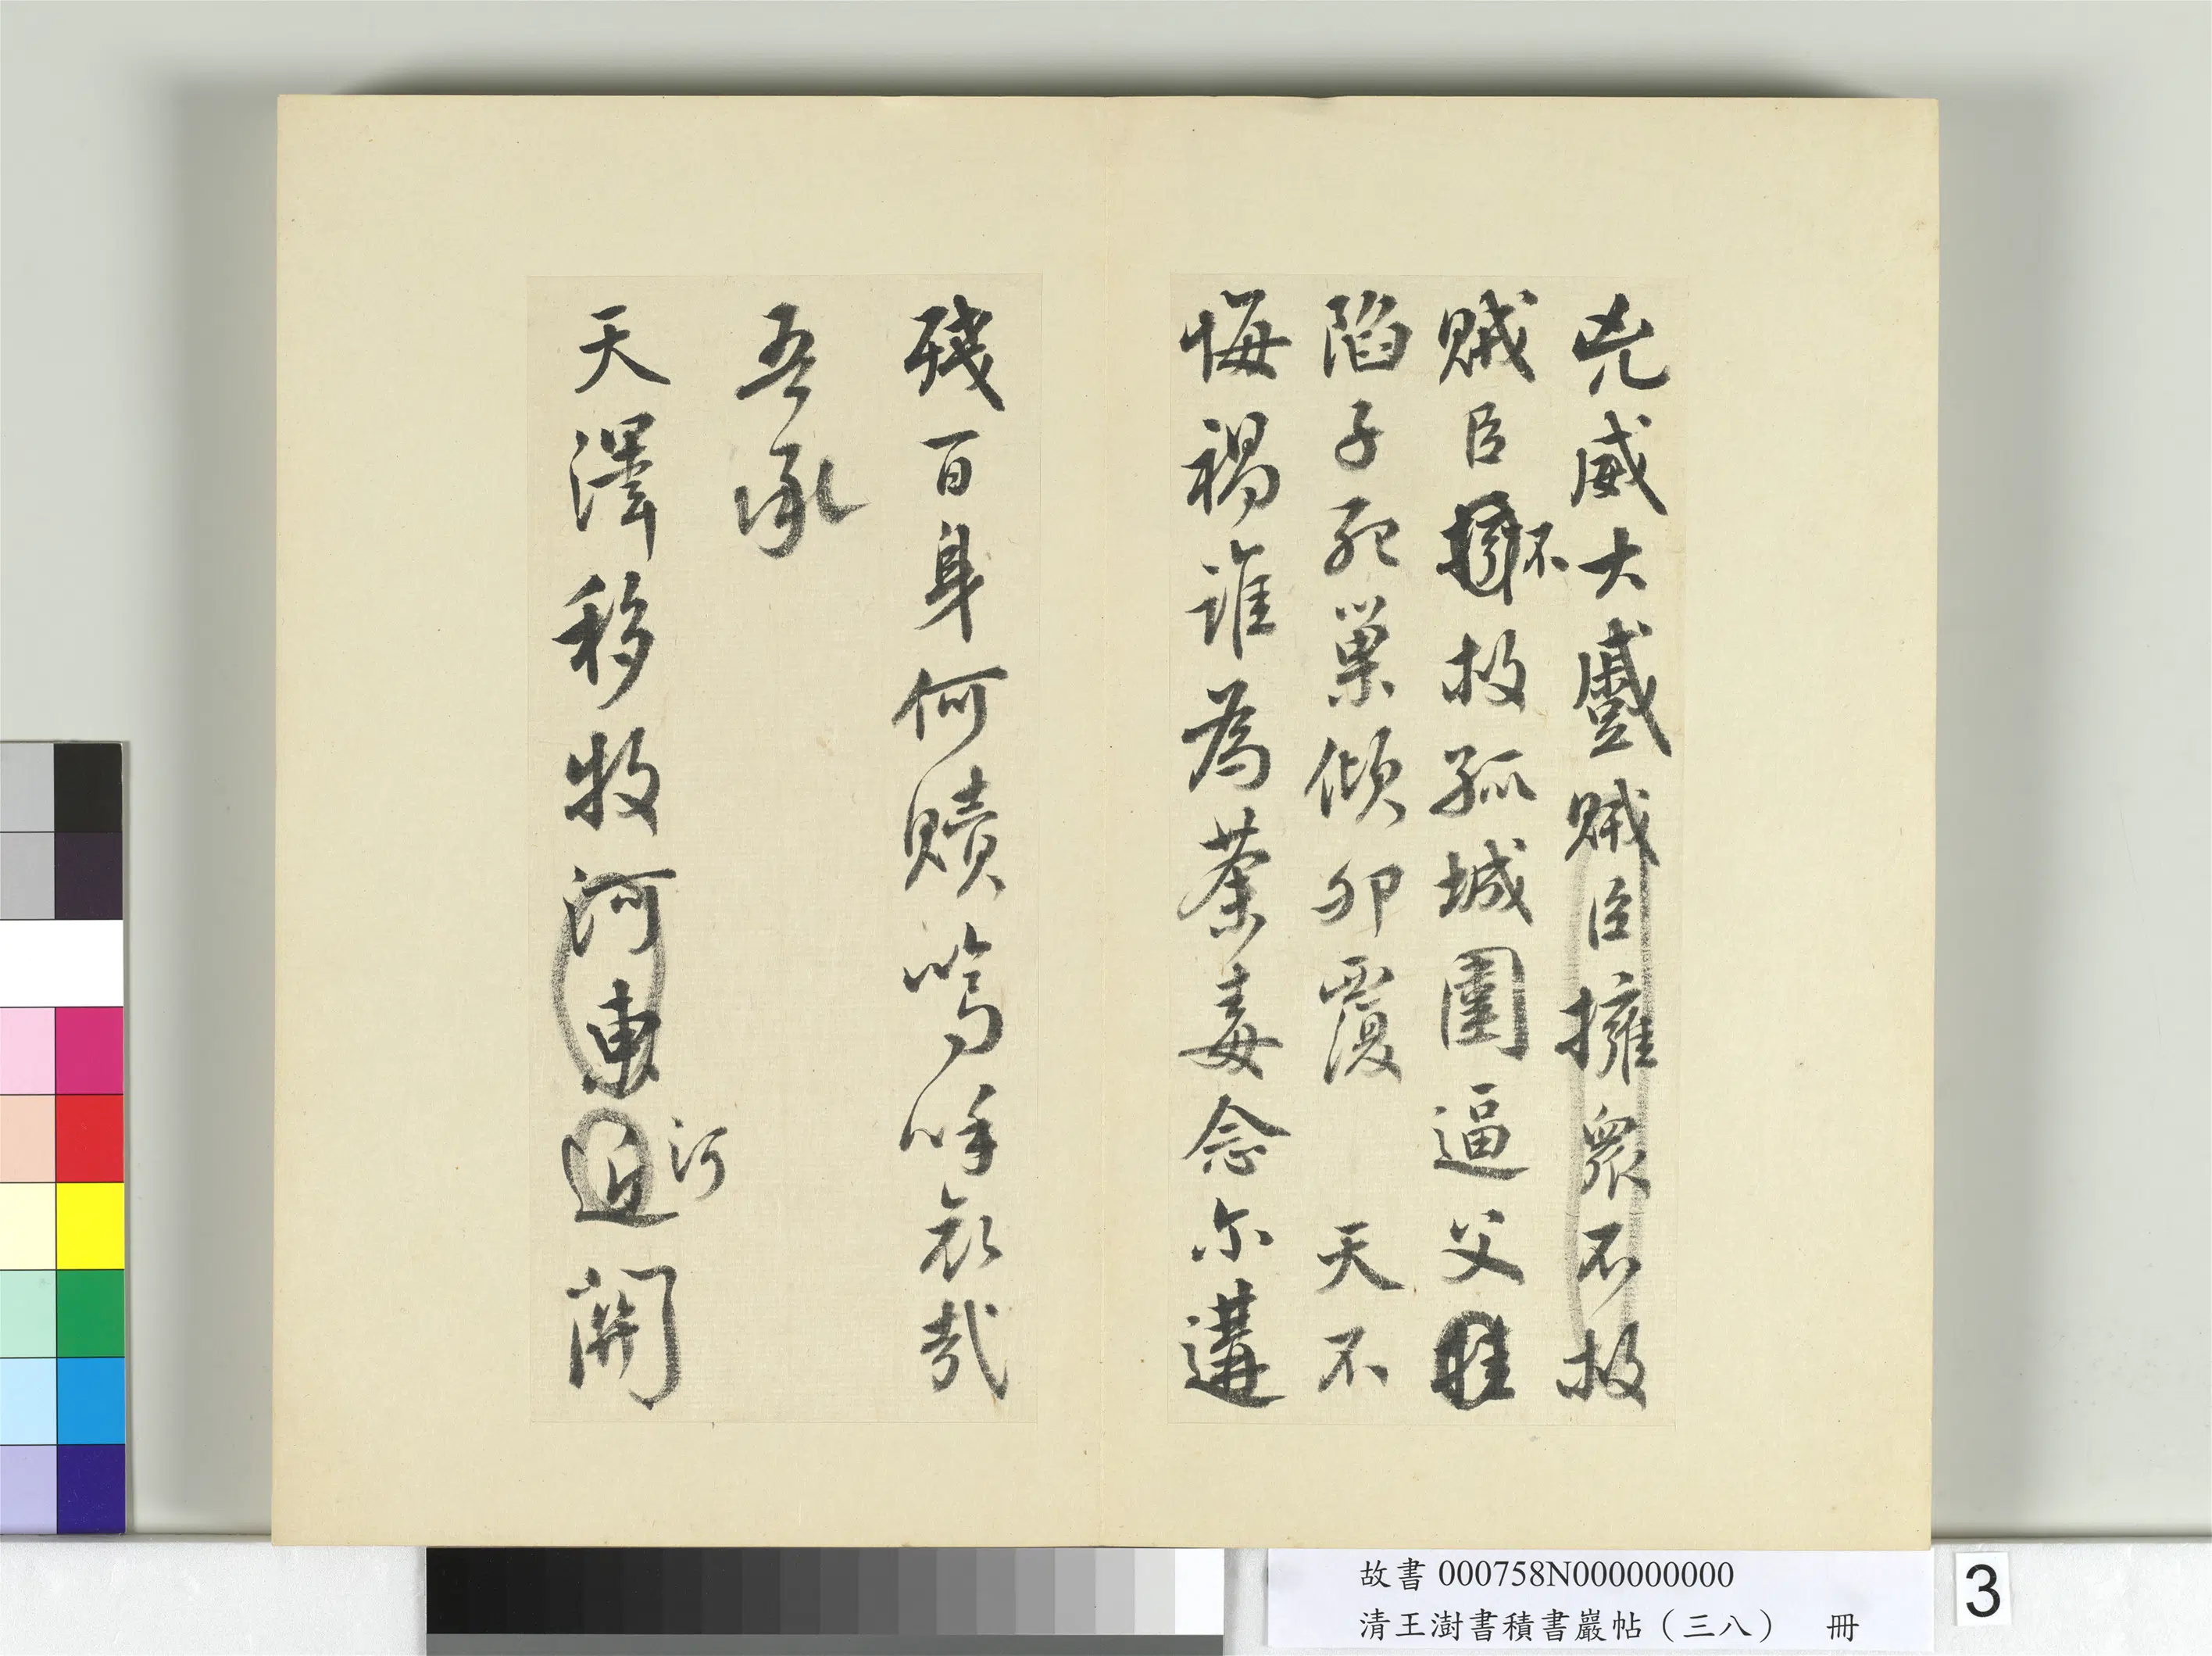 兇威大蹙賊臣擁衆不救
賊臣不救孤城圍逼父
陷子死巢傾卵覆 天不
悔禍誰為荼毒念尔遘
殘百身何贖嗚呼哀哉
吾承
天澤移牧河東近河關
故書 000758N000000000
清王澍書積書巖帖（三八） 冊
3